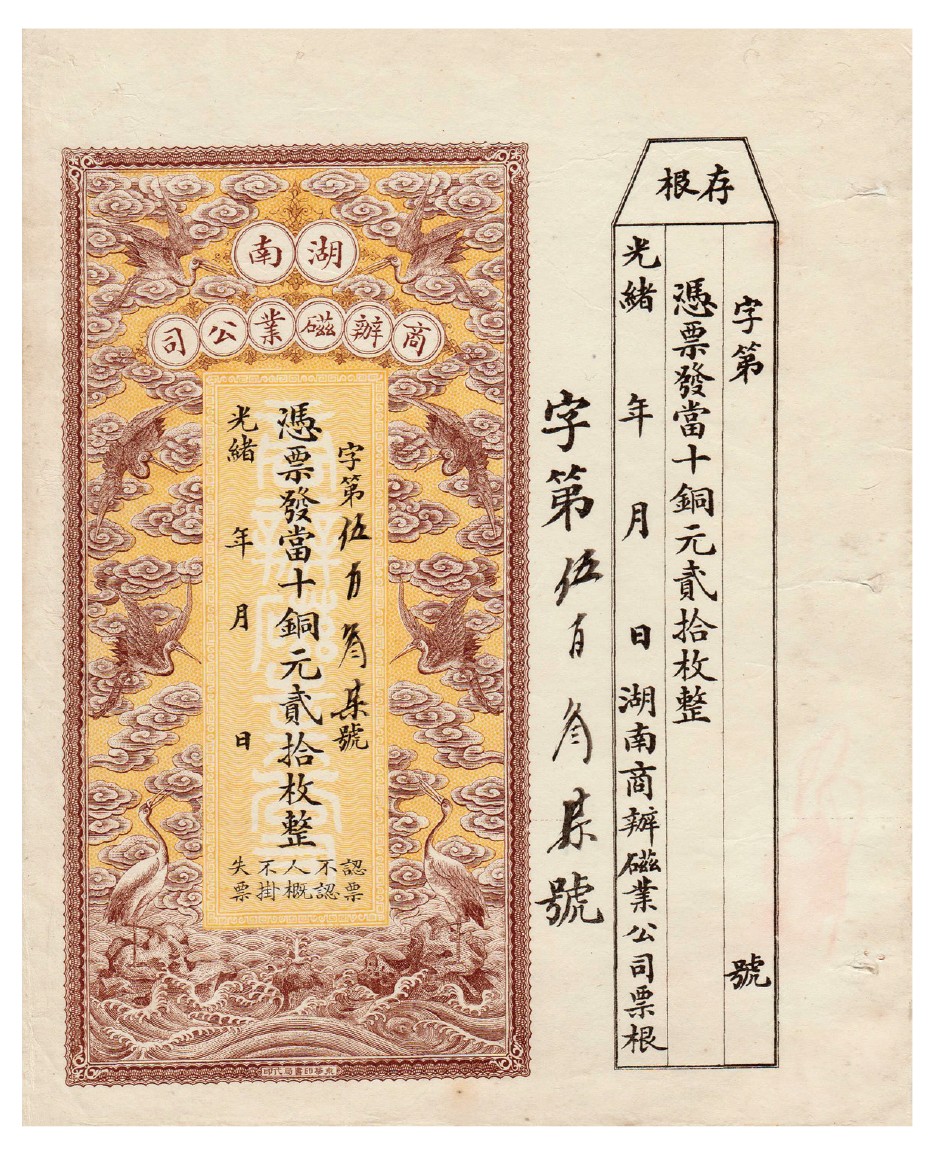 存根
字第 號
憑票發當十銅元貳拾枚整
光緒 年 月 日 湖南商辦磁業公司票根
字第伍百叁 號
湖南
商辦磁業公司
字第伍百叁 號
憑票發當十銅元貳拾枚整
光緒 年 月 日
認票
不認
人概
不掛
失票
華印書局代印